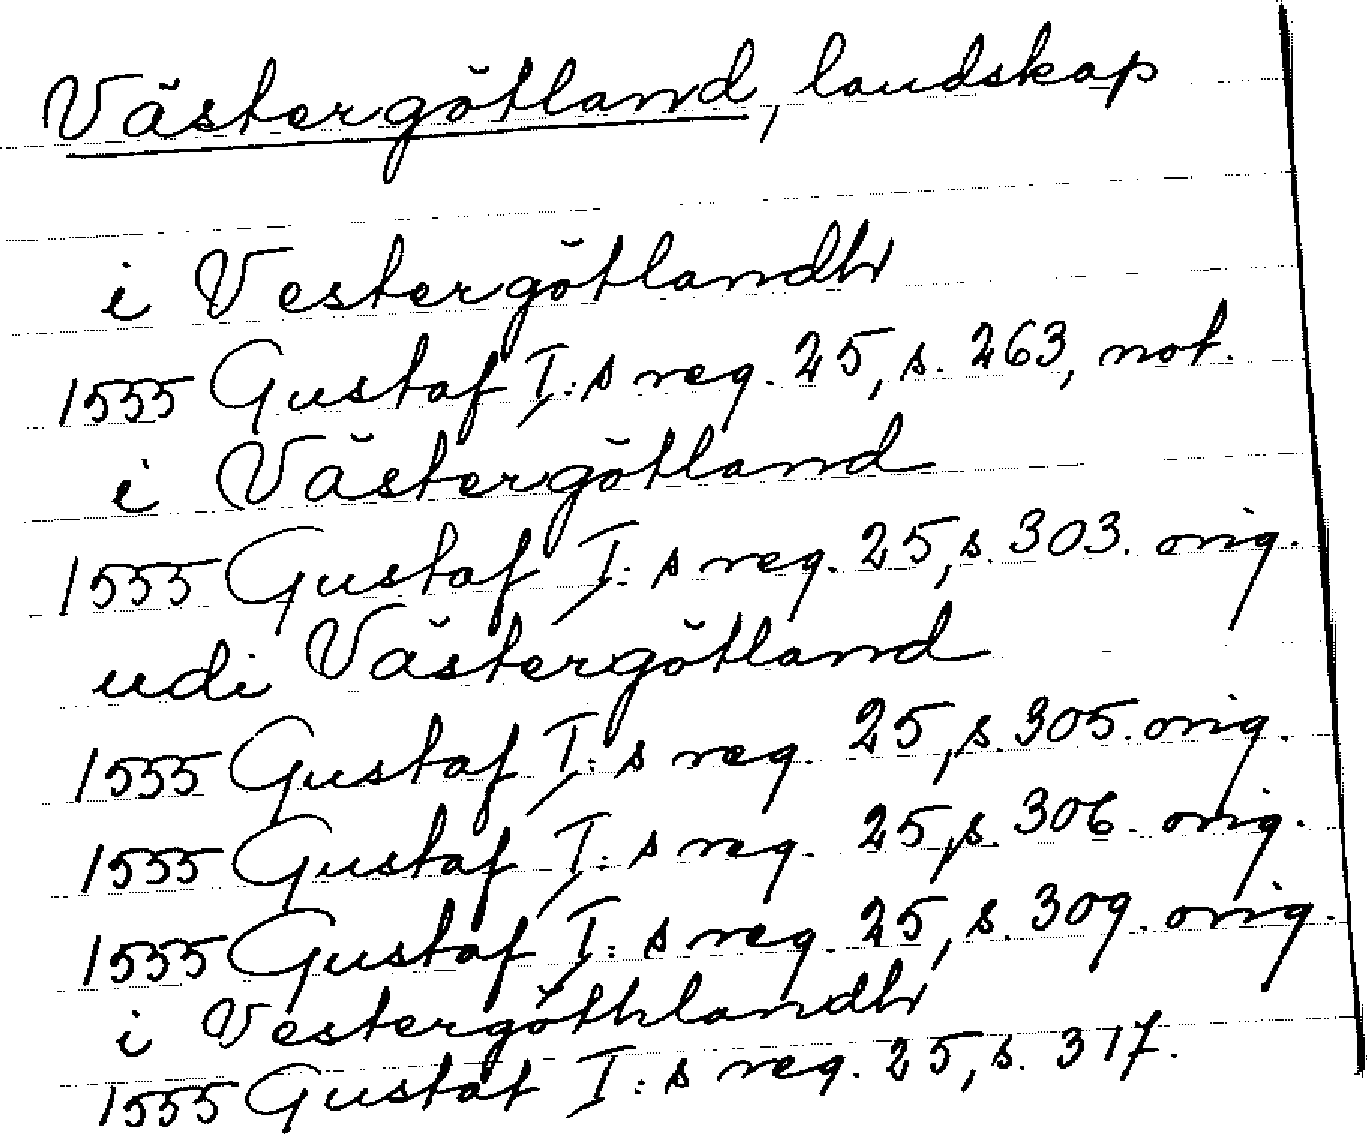 Västergötland, landskap
i Vestergötlandh
1555 Gustaf I:s reg. 25, s. 263, not.
i Västergötland
1555 Gustaf I:s reg. 25, s. 303. orig.
udi Västergötland
1555 Gustaf I:s reg. 25, s. 305. orig.
1555 Gustaf I:s reg. 25, s. 306. orig.
1555 Gustaf I:s reg. 25, s. 309. orig.
i Vestergöthlandh
1555 Gustaf I:s reg. 25, s. 317.